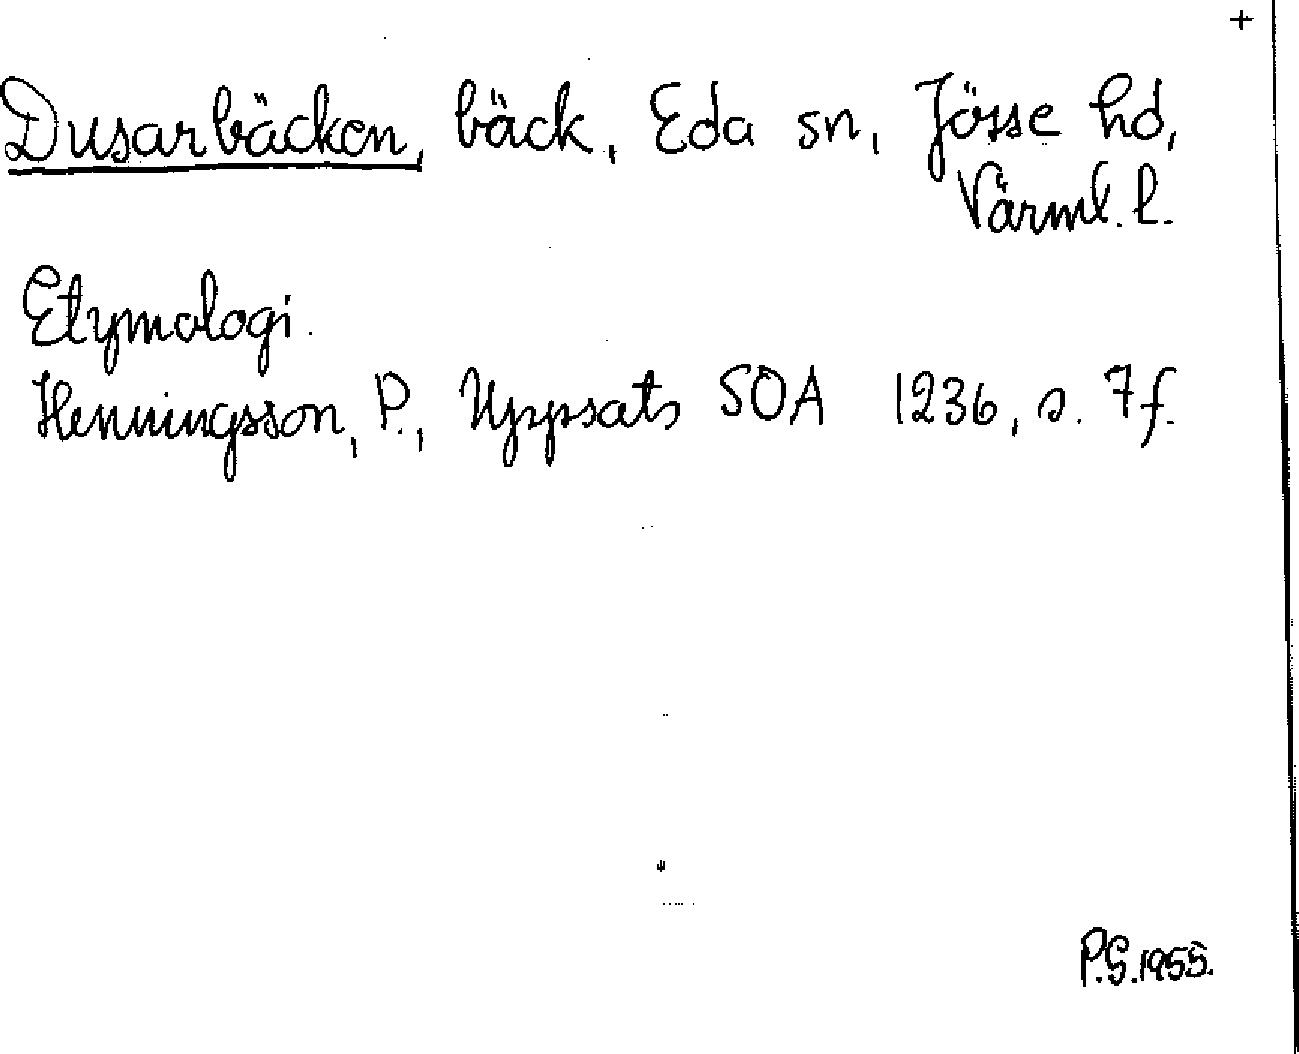 +
Dusarbäcken, bäck, Eda sn, Jösse hd,
Värml. l.
Etymologi.
Henningsson, P., Uppsats SOA 1236, s. 7f.
P.G.1955.